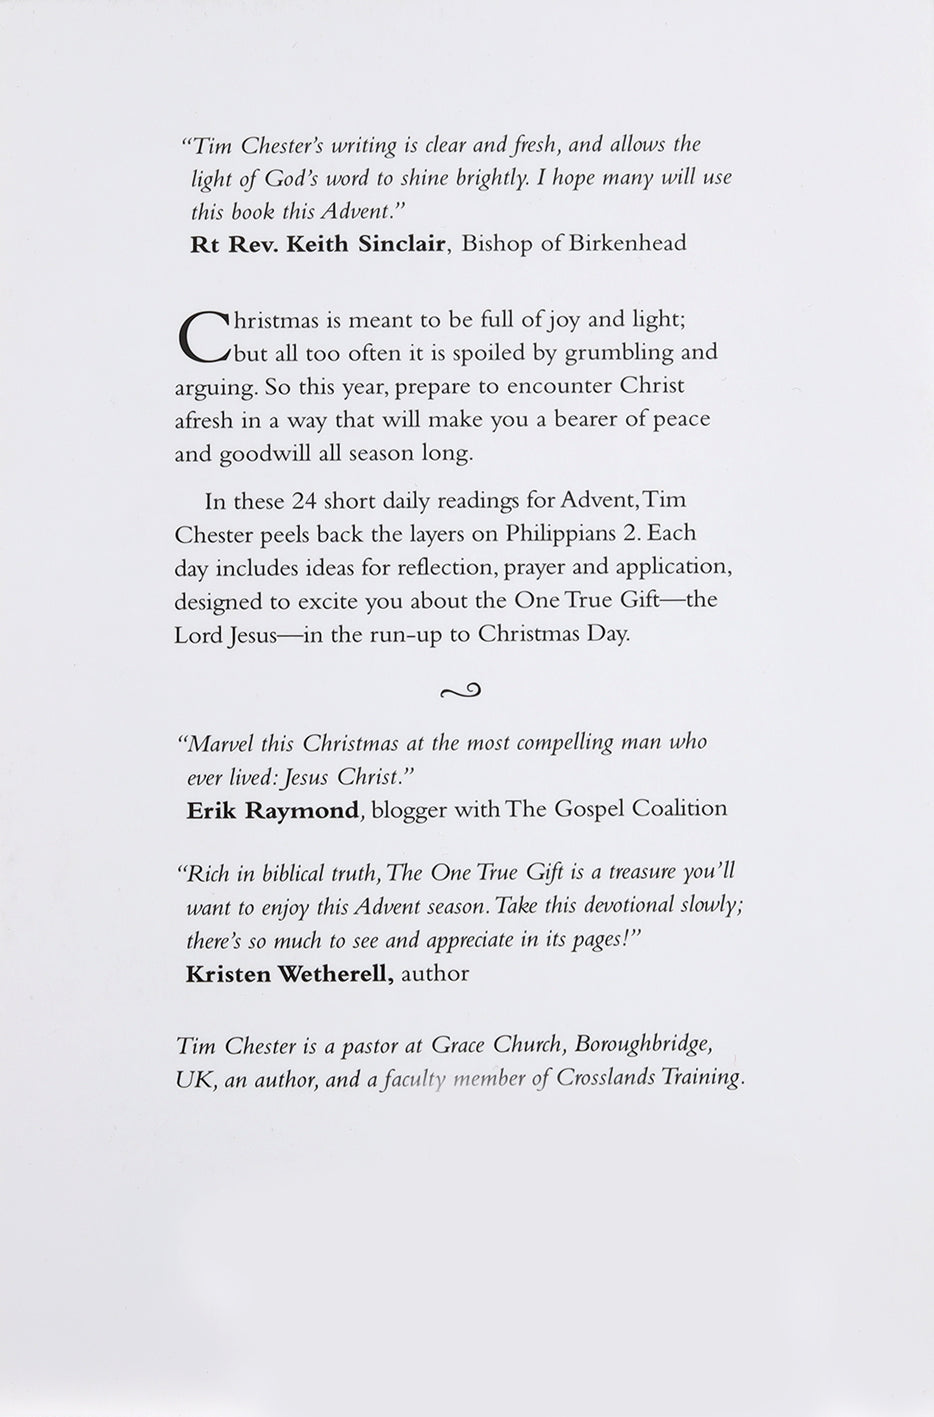 “Tim Chester’s writing is clear and fresh, and allows the
light of God’s word to shine brightly. I hope many will use
this book this Advent.”
Rt Rev. Keith Sinclair, Bishop of Birkenhead
Christmas is meant to be full of joy and light;
but all too often it is spoiled by grumbling and
arguing. So this year, prepare to encounter Christ
afresh in a way that will make you a bearer of peace
and goodwill all season long.
In these 24 short daily readings for Advent, Tim
Chester peels back the layers on Philippians 2. Each
day includes ideas for reflection, prayer and application,
designed to excite you about the One True Gift—the
Lord Jesus—in the run-up to Christmas Day.
“Marvel this Christmas at the most compelling man who
ever lived: Jesus Christ.”
Erik Raymond, blogger with The Gospel Coalition
“Rich in biblical truth, The One True Gift is a treasure you’ll
want to enjoy this Advent season. Take this devotional slowly;
there’s so much to see and appreciate in its pages!”
Kristen Wetherell, author
Tim Chester is a pastor at Grace Church, Boroughbridge,
UK, an author, and a faculty member of Crosslands Training.